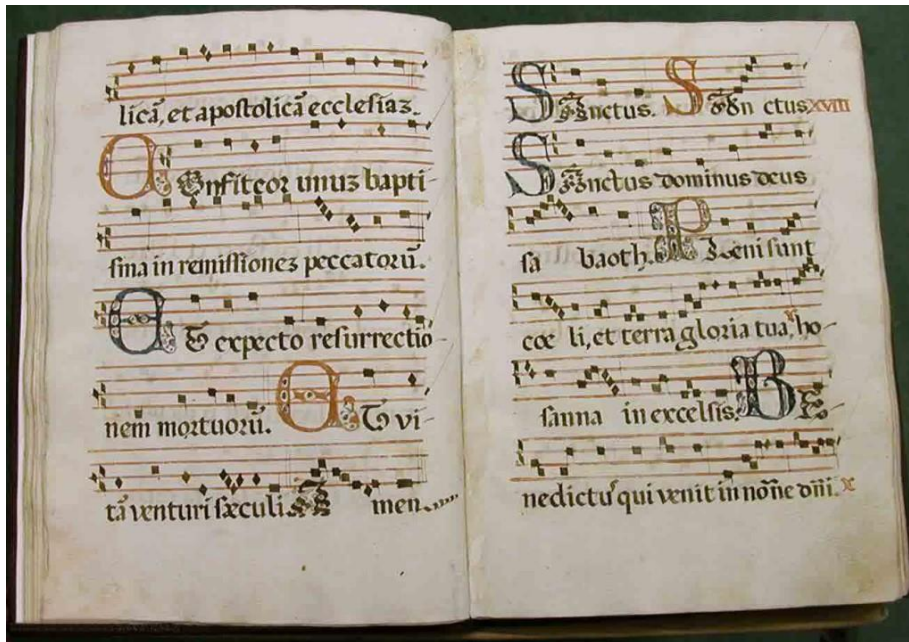 licā, et apostolicā ecclesiaz.
Confiteor unuz bapti
sma in remissionez peccatorū.
Et expecto resurrectio-
nem mortuorū. Et vi-
tā venturi sæculi. Amen.
Sanctus. Sanctus XVIII
Sanctus dominus deus
sabaoth. Pleni sunt
cœli, et terra gloria tua, ho-
sanna in excelsis. Be
nedictu' qui venit in noīne dn̄i.